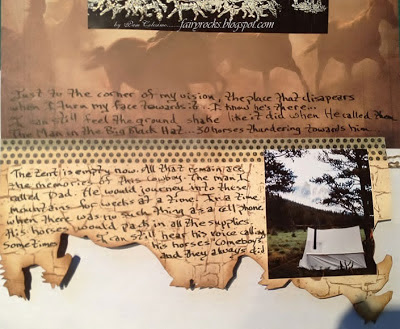 by Pam Celeste..... fairyrocks.blogspot.com
Just to the corner of my vision, the place that disapears
when I turn my face towards it... I know he's there...
I can still feel the ground shake like it did when He called them.
The Man in the Big Black Hat... 30 horses thundering towards him
The tent is empty now. All that remains are
the memories of the Cowboy. The man I
called Dad. He would journey into these
mountains for weeks at a time. In a time
when there was no such thing as a cell phone
His horses would pack in all the supplies.
Sometimes I can still hear his voice calling
his horses "Comeboys"
and they always did